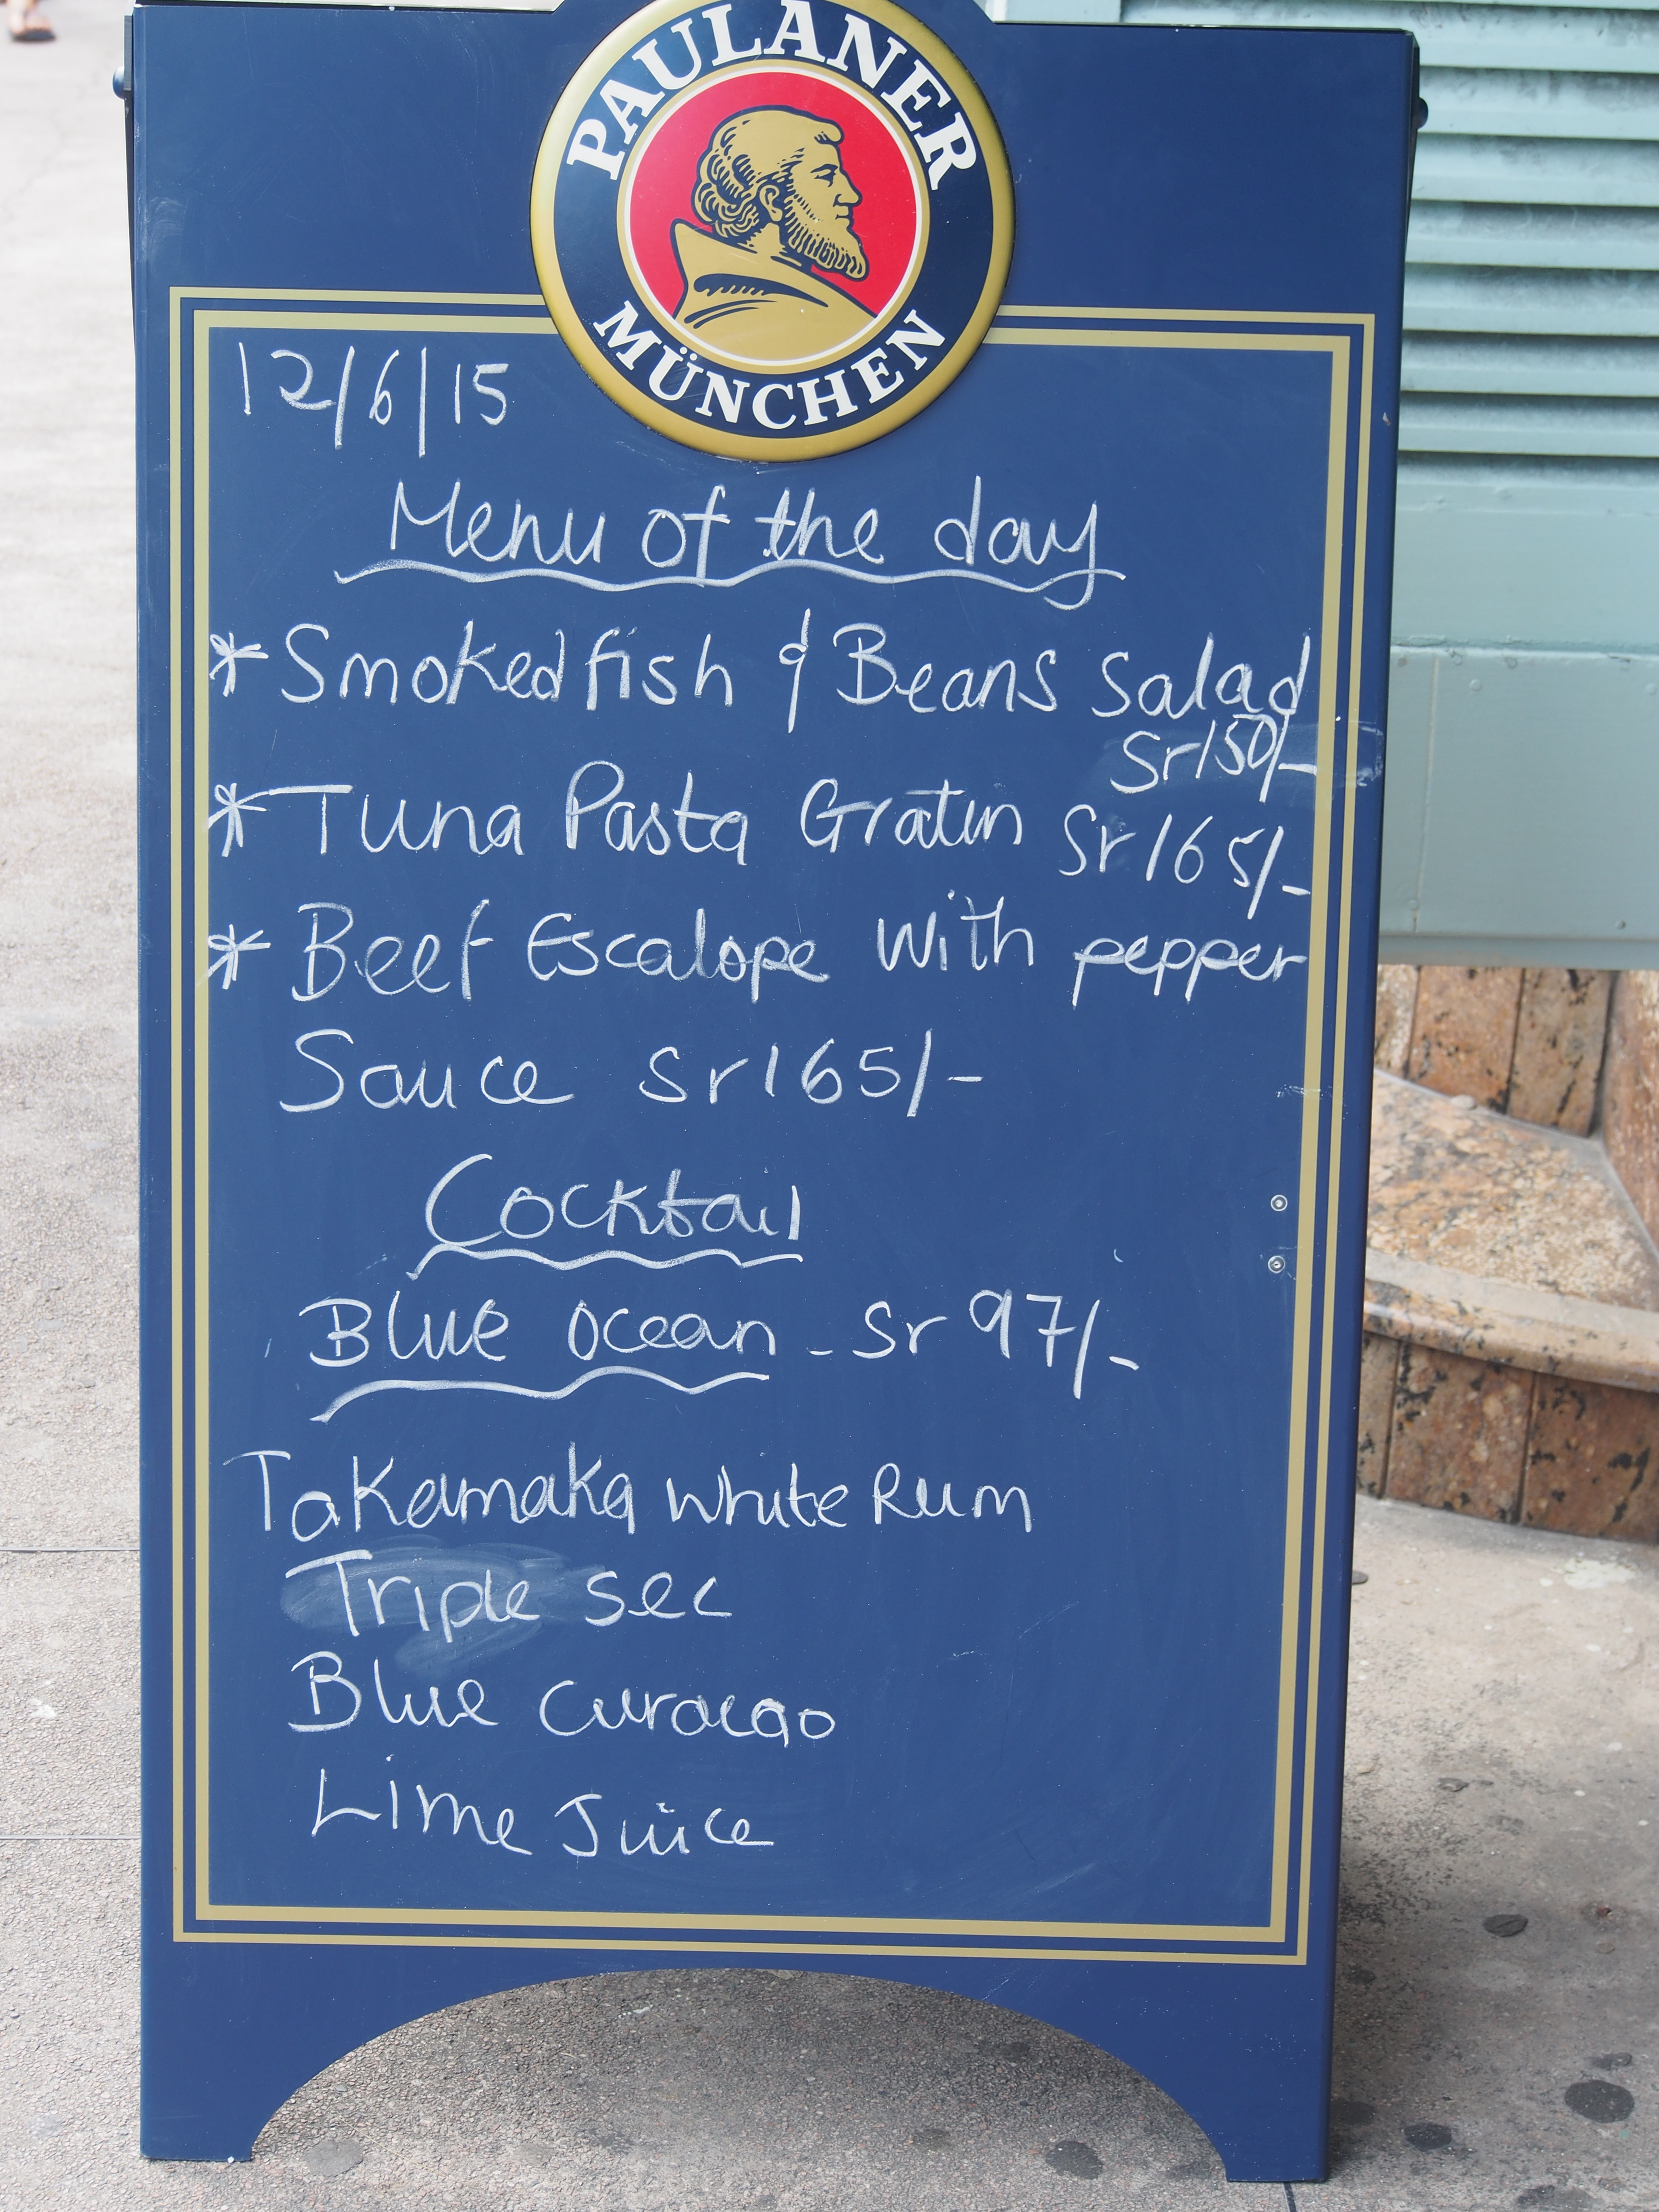 PAULANER
MÜNCHEN
12/6/15
Menu of the day
* Smoked fish & Beans Salad
Sr150/-
* Tuna Pasta Gratin Sr165/-
* Beef Escalope with pepper
Sauce Sr165/-
Cocktail
Blue Ocean - Sr 97/-
Takamaka White Rum
Triple sec
Blue curacao
Lime Juice